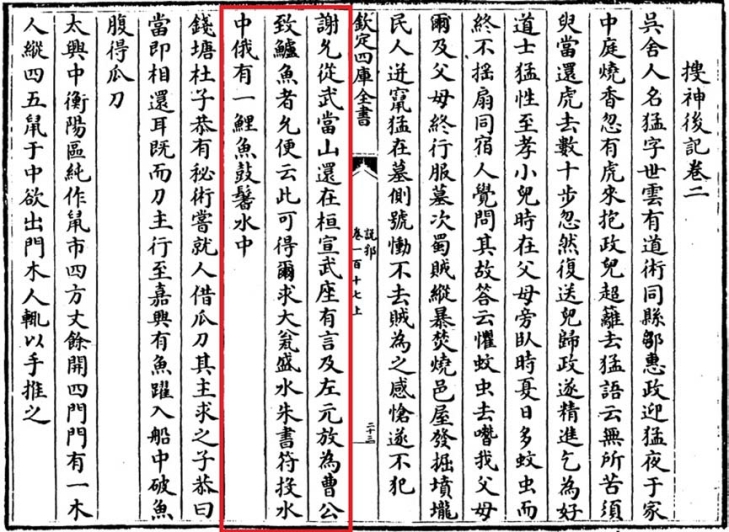 搜神後記卷二
吳舍人名猛字世雲有道術同縣鄒惠政迎猛夜于家
中庭燒香忽有虎來抱政兒超籬去猛語云無所苦須
臾當還虎去數十步忽然復送兒歸政遂精進乞為好
道士猛性至孝小兒時在父母旁臥時夏日多蚊虫而
終不搖扇同宿人覺問其故答云懼蚊虫去噆我父母
爾及父母終行服墓次蜀賊縱暴焚燒邑屋發掘墳壠
民人迸竄猛在墓側號慟不去賊為之感愴遂不犯
欽定四庫全書
說郛
卷一百十七上
二十三
謝允從武當山還在桓宣武座有言及左元放為曹公
致鱸魚者允便云此可得爾求大瓮盛水朱書符投水
中俄有一鯉魚鼓鬐水中
錢塘杜子恭有秘術嘗就人借瓜刀其主求之子恭曰
當即相還耳既而刀主行至嘉興有魚躍入船中破魚
腹得瓜刀
太興中衡陽區純作鼠市四方丈餘開四門門有一木
人縱四五鼠于中欲出門木人輒以手推之